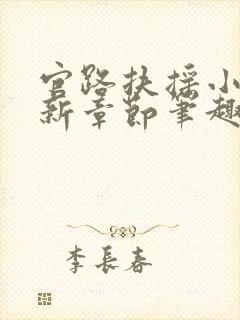 官路扶摇小
新章节笔趣
李长春